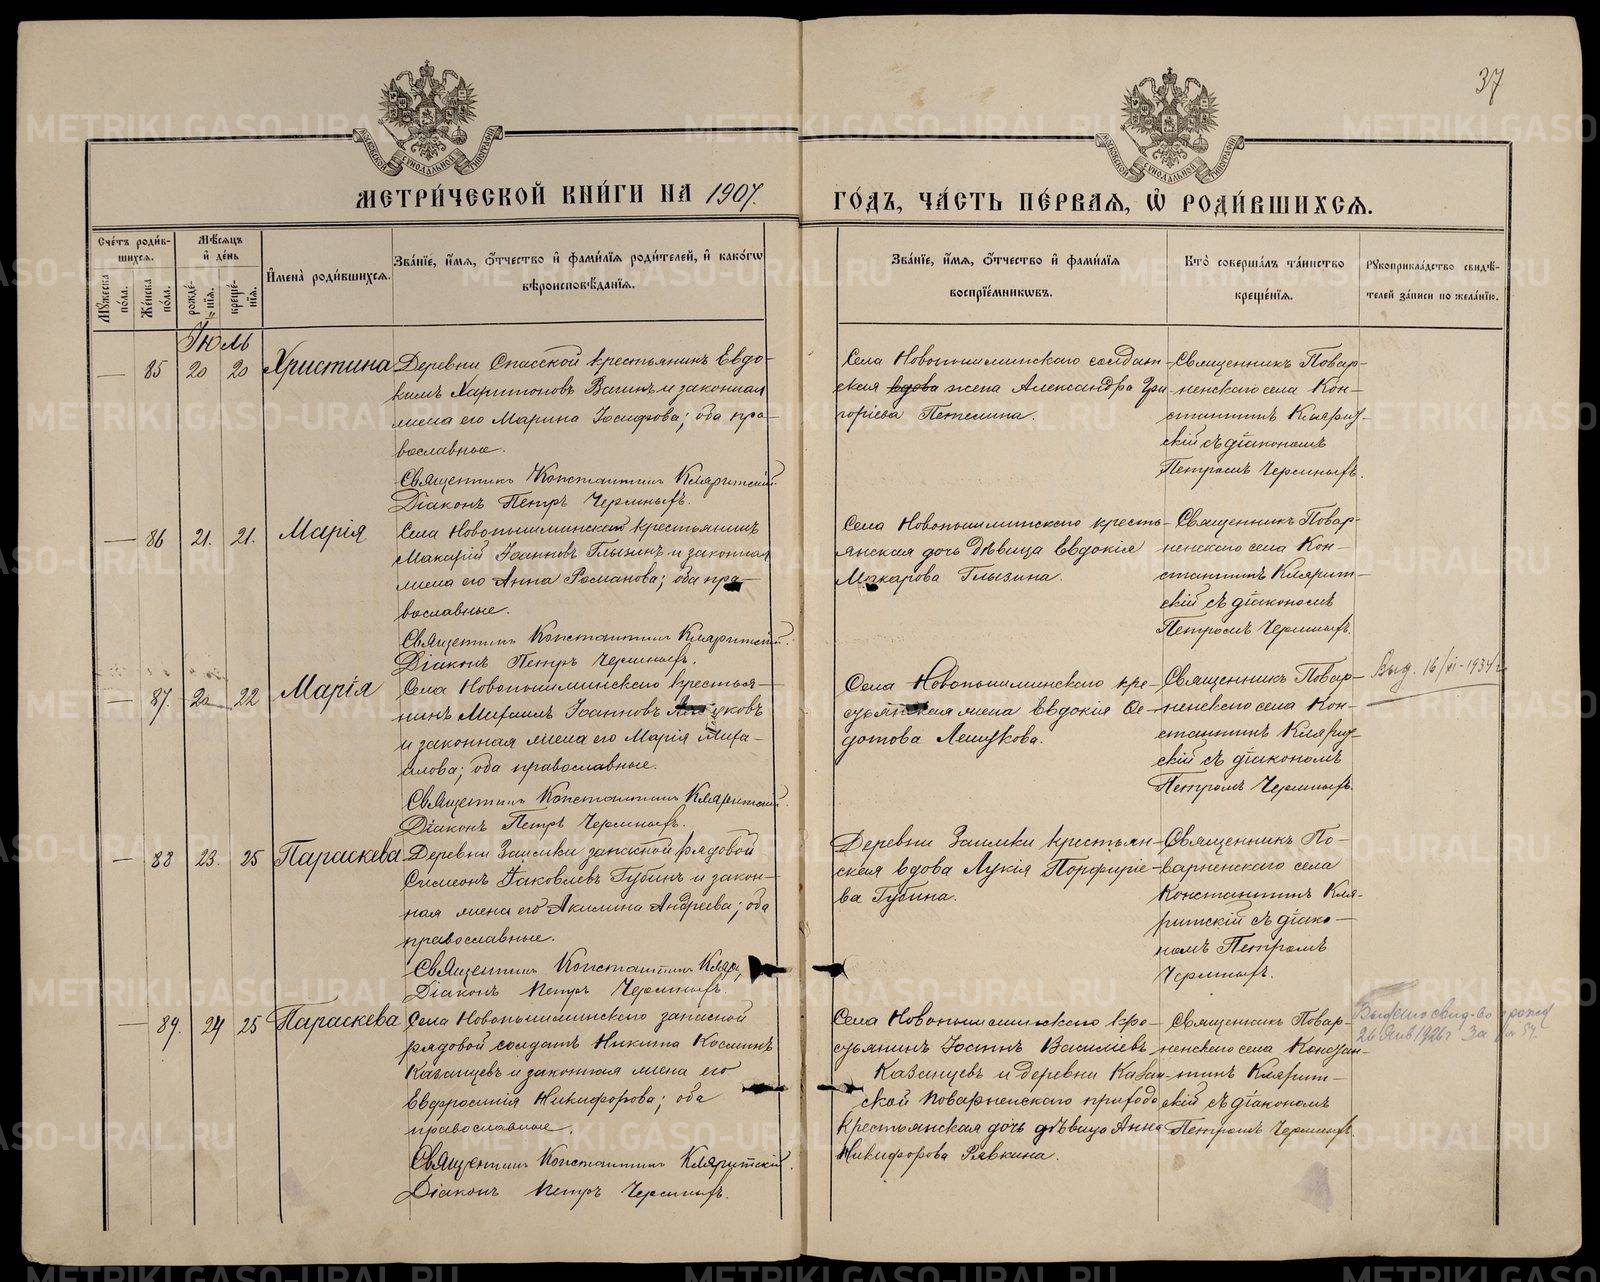 37
МОСКОВСКОЙ СѴНОДАЛЬНОЙ ТИПОГРАФІИ
МОСКОВСКОЙ СѴНОДАЛЬНОЙ ТИПОГРАФІИ
МЕТРИ́ЧЕСКОЙ КНИ́ГИ НА 1907.
ГО́ДЪ, ЧА́СТЬ ПЕ́РВАѦ, Ѽ РОДИ́ВШИХСѦ.
Счє́тъ роди́в-
шихсѧ.
Мꙋ́жеска по́ла.
Же́нска по́ла.
Мѣ́сѧцъ
и҆ де́нь
рожде́-нїѧ.
креще́-нїѧ.
И҆мена̀ роди́вшихсѧ.
Зва́нїе, и҆́мѧ, ѻ҆́тчество и҆ фами́лїѧ роди́телей, и҆ како́гѡ
вѣроисповѣ́данїѧ.
Зва́нїе, и҆́мѧ, ѻ҆́тчество и҆ фами́лїѧ
воспрїе́мникѡвъ.
Кто̀ соверша́лъ та́инство
креще́нїѧ.
Рꙋкоприкла́дство свидѣ́-
телей за́писи по жела́нїю.
Іюль
— 85 20 20 Христина
Деревни Спасской крестьянинъ Евдо-
кимъ Харитоновъ Вагинъ и законная
жена его Марина Іосифова; оба пра-
вославные.
Священникъ Константинъ Кляритскій.
Діаконъ Петръ Черемныхъ.
Села Новопышминскаго солдат-
ская вдова жена Александра Гри-
горіева Петелина.
Священникъ Повар-
ненскаго села Кон-
стантинъ Клярит-
скій съ діакономъ
Петромъ Черемныхъ.
— 86 21. 21. Марія
Села Новопышминскаго крестьянинъ
Макарій Іоанновъ Глызинъ и законная
жена его Анна Романова; оба пра-
вославные.
Священникъ Константинъ Кляритскій.
Діаконъ Петръ Черемныхъ.
Села Новопышминскаго кресть-
янская дочь дѣвица Евдокія
Макарова Глызина.
Священникъ Повар-
ненскаго села Кон-
стантинъ Клярит-
скій съ діакономъ
Петромъ Черемныхъ.
— 87. 20 22 Марія
Села Новопышминскаго крестья-
нинъ Михаилъ Іоанновъ
и законная жена его Марія Миха-
илова; оба православные.
Священникъ Константинъ Кляритскій.
Діаконъ Петръ Черемныхъ.
Села Новопышминскаго кре-
стьянская жена Евдокія Ѳе-
дотова Лешукова.
Священникъ Повар-
ненскаго села Кон-
стантинъ Клярит-
скій съ діакономъ
Петромъ Черемныхъ.
Выд. 16/
— 88 23. 25 Параскева
Деревни Заимки запасной рядовой
Симеонъ Іаковлевъ Губинъ и закон-
ная жена его Акилина Андреева; оба
православные.
Священникъ Константинъ
Діаконъ Петръ Черемныхъ.
Деревни Заимки крестьян-
ская вдова Лукія Порфиріе-
ва Губина.
Священникъ По-
варненскаго села
Константинъ Кля-
ритскій съ діако-
номъ Петромъ
Черемныхъ.
— 89. 24 25 Параскева
Села Новопышминскаго запасной
рядовой солдатъ Никита Косминъ
Казанцевъ и законная жена его
Евфросинія Никифорова; оба
православные.
Священникъ Константинъ Кляритскій.
Діаконъ Петръ Черемныхъ.
Села Новопышминскаго кре-
стьянинъ Іоаннъ Василіевъ
Казанцевъ и деревни Казан-
ской Поварненскаго прихода
крестьянская дочь дѣвица Анна
Никифорова Рявкина.
Священникъ Повар-
ненскаго села Констан-
тинъ Клярит-
скій съ діакономъ
Петромъ Черемныхъ.
Выдано свид-во о рожд
26 Янв 1926 г За № 54.